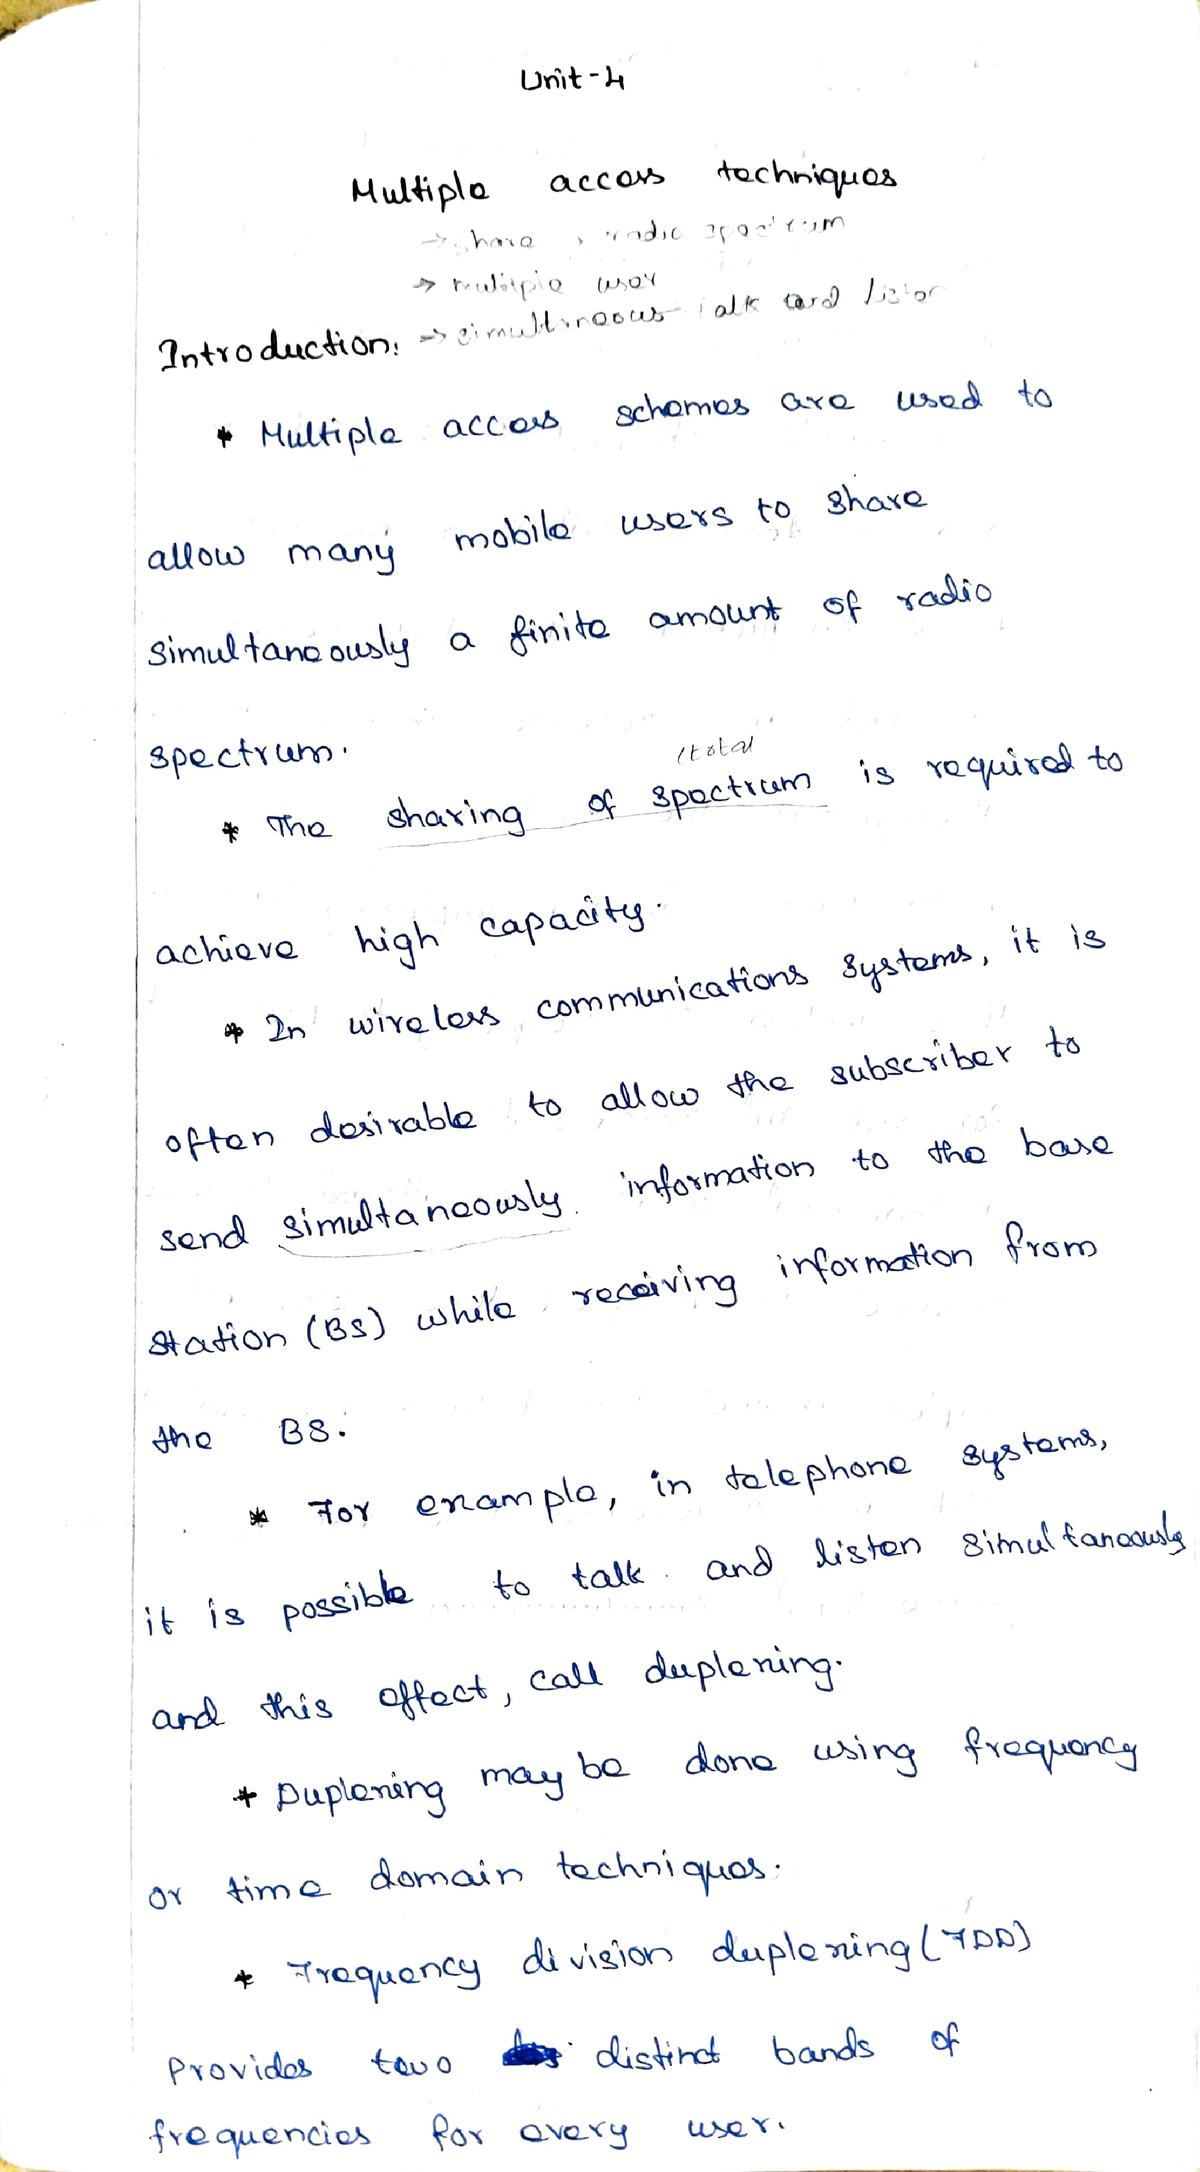 Unit-4
Multiple access techniques
→ share radio spectrum
→ multiple user
Introduction: → simultaneous talk and listen
* Multiple access schemes are used to
allow many mobile users to share
simultaneously a finite amount of radio
spectrum.
/total
* The sharing of spectrum is required to
achieve high capacity.
* In wireless communications systems, it is
often desirable to allow the subscriber to
send simultaneously information to the base
station (BS) while receiving information from
the BS.
* For example, in telephone systems,
it is possible to talk and listen simultaneously
and this effect, call duplexing.
* Duplexing may be done using frequency
or time domain techniques.
* Frequency division duplexing (FDD)
Provides two distinct bands of
frequencies for every user.